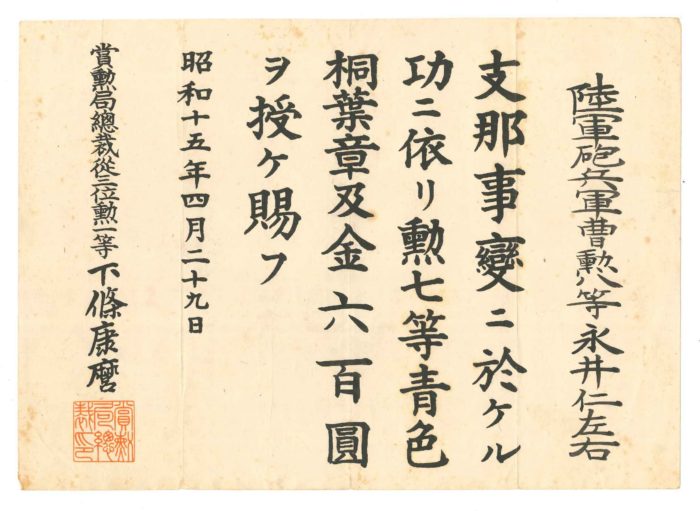 陸軍砲兵軍曹勲八等永井仁左右
支那事變ニ於ケル
功ニ依リ勲七等青色
桐葉章及金六百圓
ヲ授ケ賜フ
昭和十五年四月二十九日
賞勲局總裁從三位勲一等下條康麿
賞勲
局總
裁印